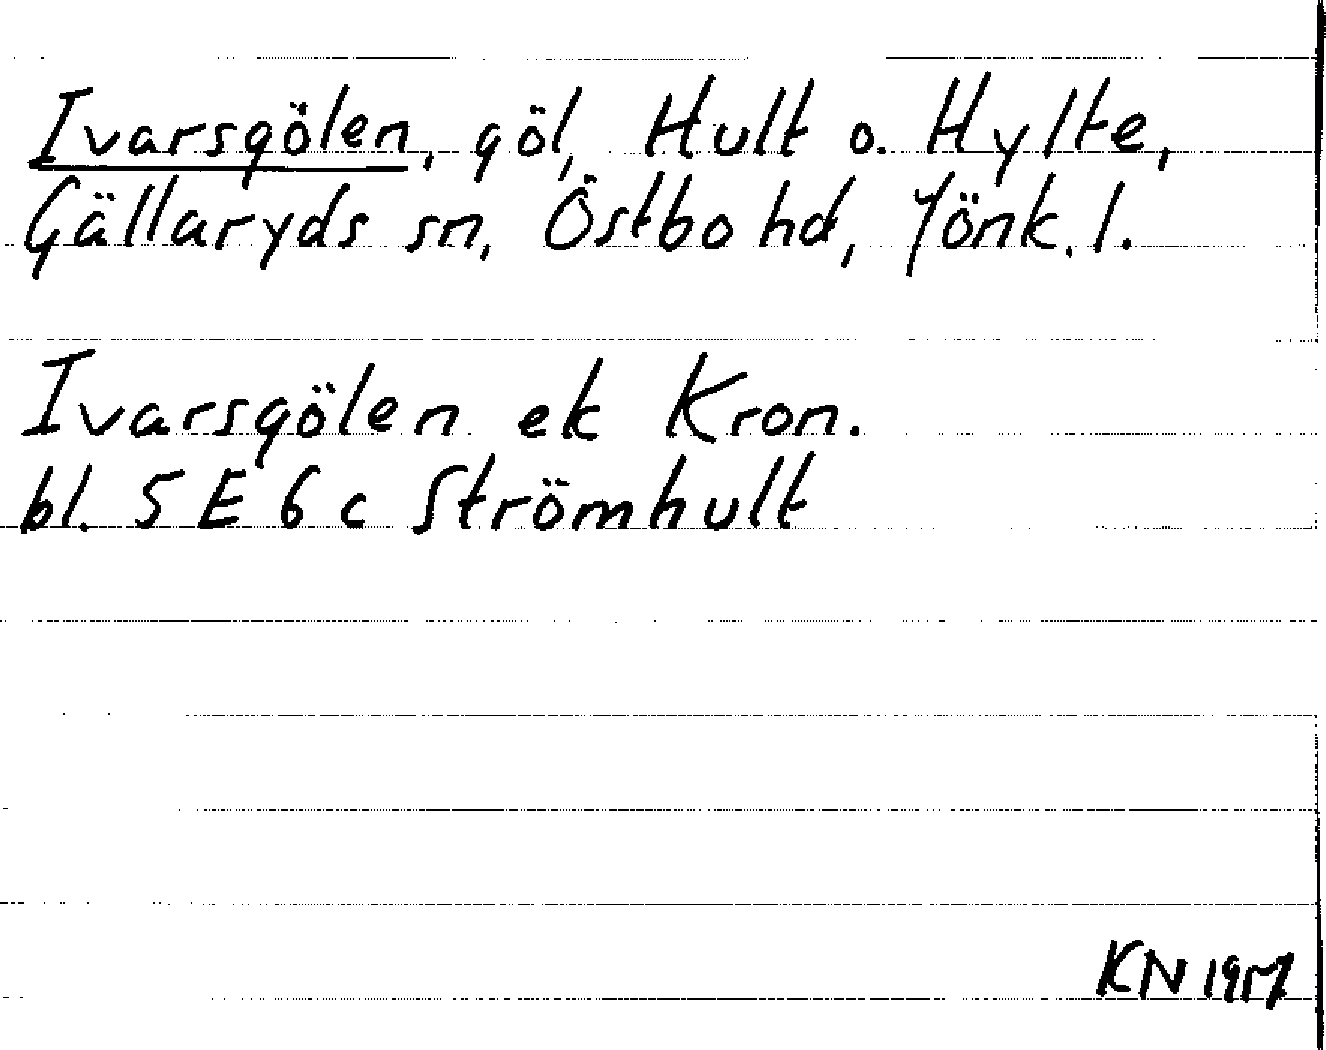 Ivarsgölen, göl, Hult o. Hylte,
Gällaryds sn, Östbo hd, Jönk. l.
Ivarsgölen ek Kron.
bl. 5 E 6 c Strömhult
KN 1957